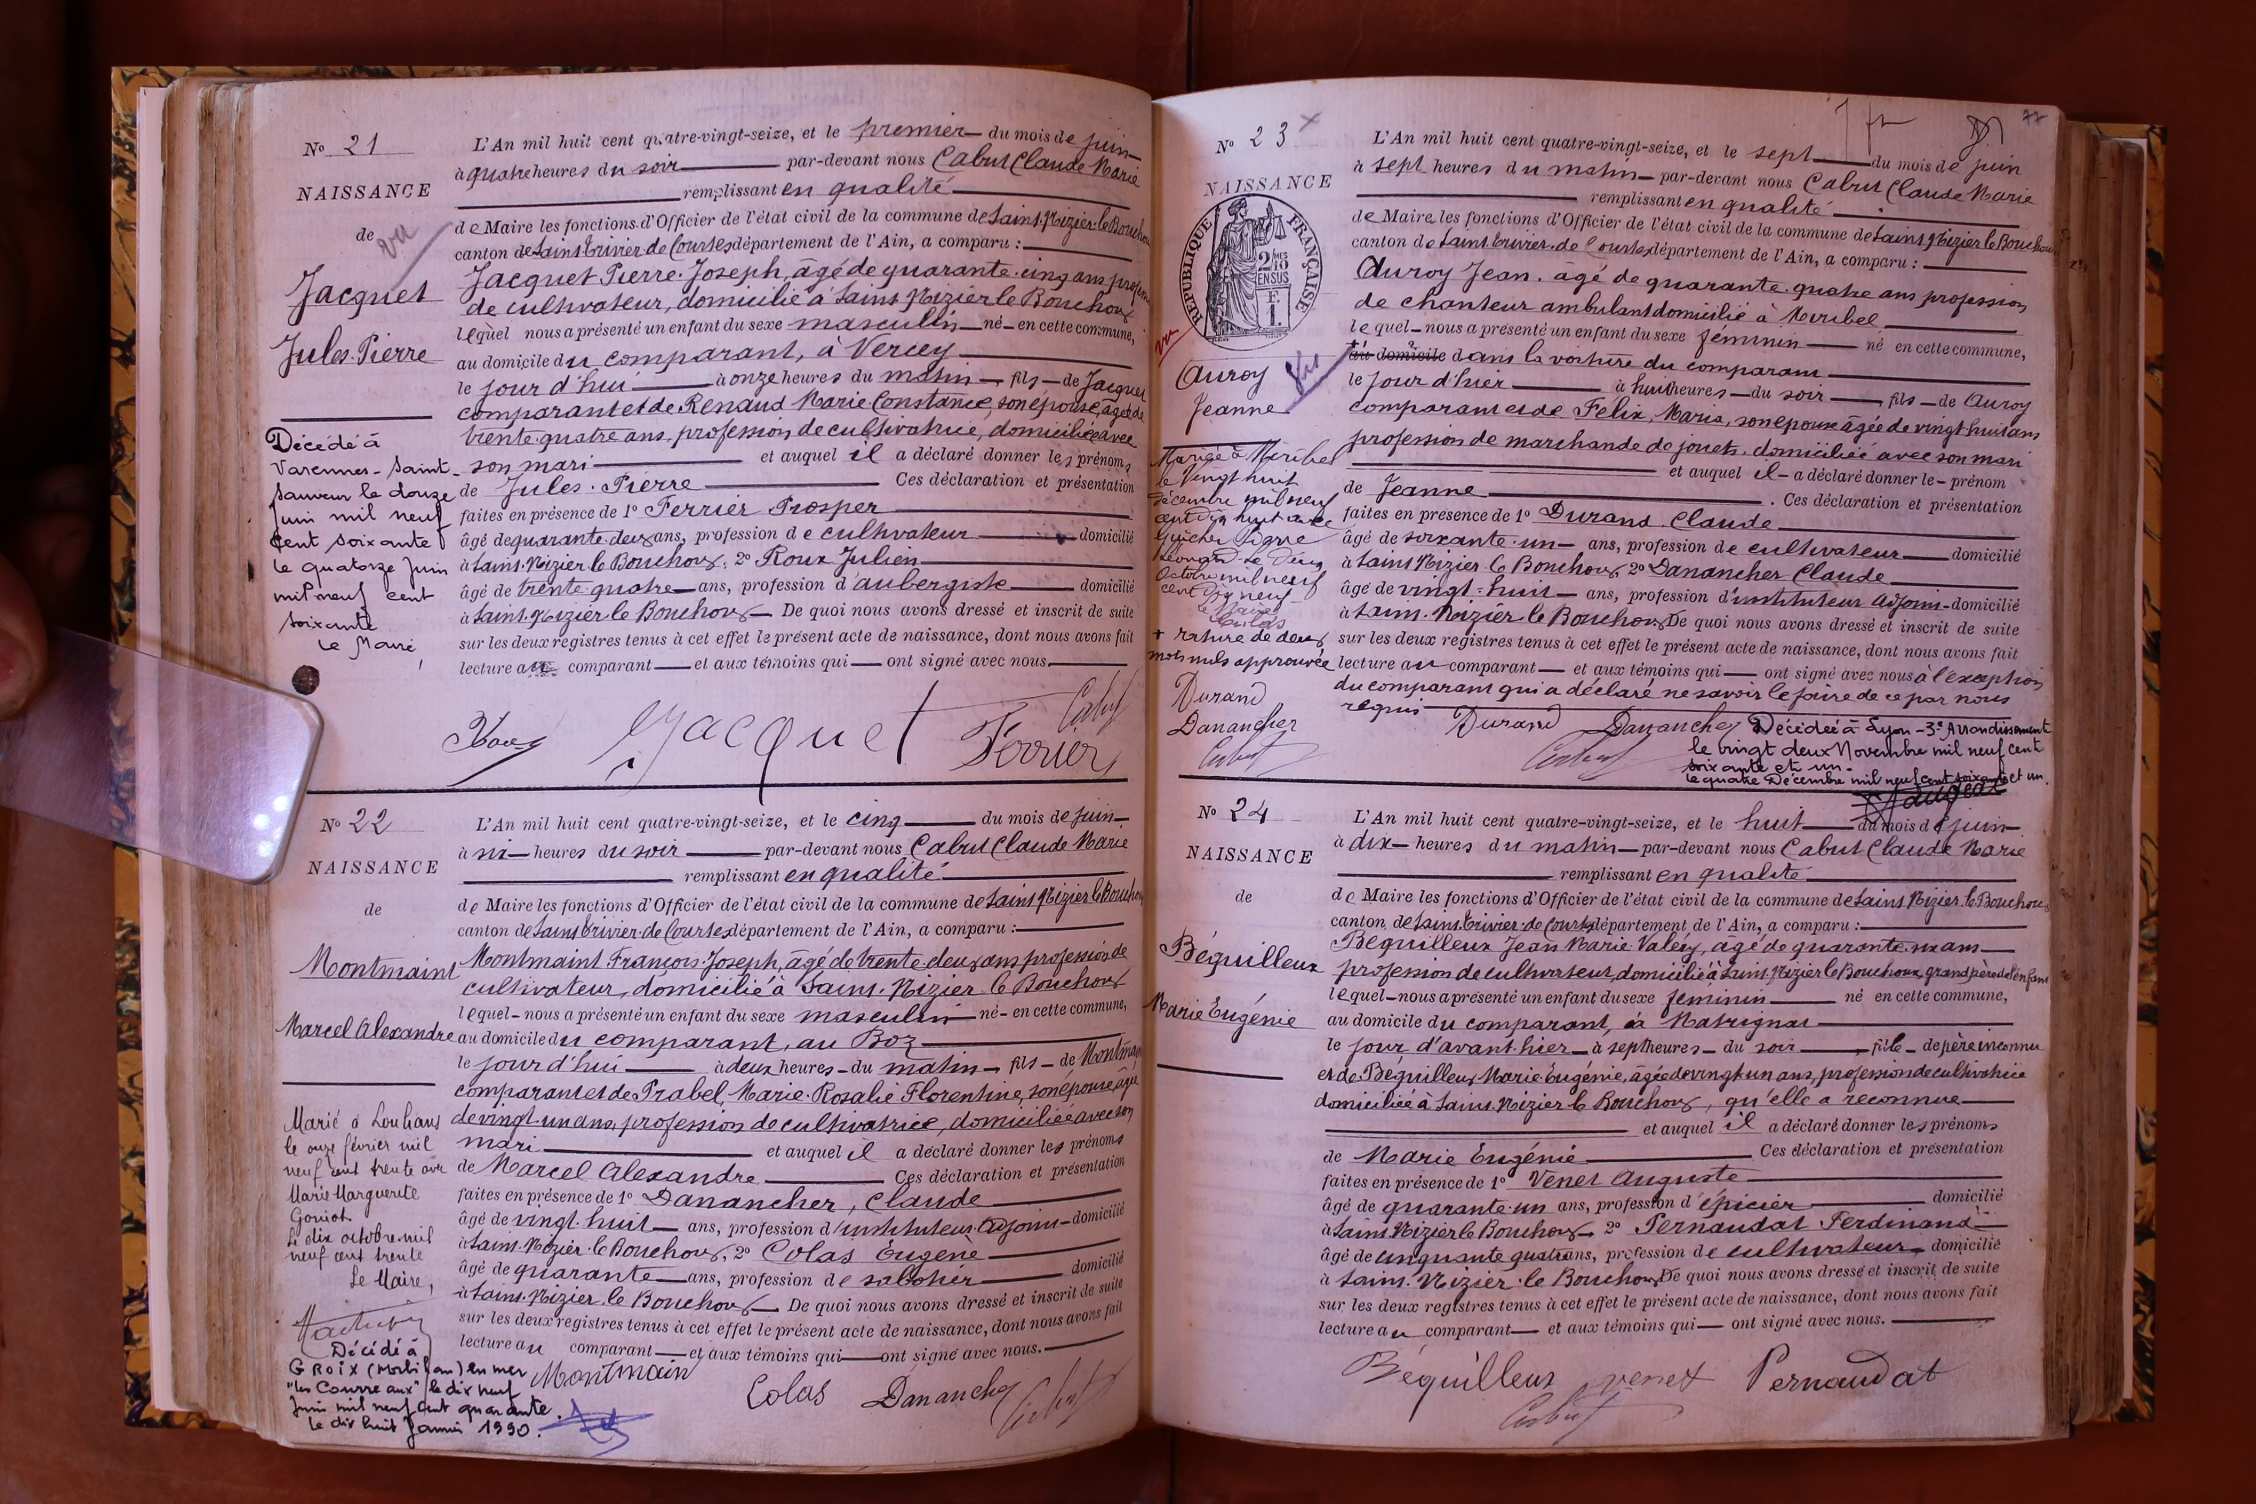 N° 21
NAISSANCE
de
vu
Jacquet
Jules. Pierre
Décédé à
Varennes-Saint-
Sauveur le douze
Juin mil neuf
cent soixante
le quatorze Juin
mil neuf cent
soixante
Le Maire,
L'An mil huit cent quatre-vingt-seize, et le premier du mois de juin
à quatre heures du soir par-devant nous Cabut Claude Marie
remplissant en qualité
de Maire les fonctions d'Officier de l'état civil de la commune de Saint. Nizier. le Bouchoux
canton de Saint Trivier de Courtes département de l'Ain, a comparu :
Jacquet Pierre. Joseph, âgé de quarante. cinq ans profession
de cultivateur, domicilié à Saint Nizier le Bouchoux
lequel nous a présenté un enfant du sexe masculin né en cette commune,
au domicile du comparant, à Vercey
le jour d'hui à onze heures du matin fils de Jacquet
comparant et de Renaud Marie Constance, son épouse, âgée de
trente. quatre ans, profession de cultivatrice, domiciliée avec
son mari et auquel il a déclaré donner les prénoms
de Jules. Pierre Ces déclaration et présentation
faites en présence de 1° Ferrier Prosper
âgé de quarante. deux ans, profession de cultivateur domicilié
à Saint. Nizier le Bouchoux. 2° Roux Julien
âgé de trente quatre ans, profession d'aubergiste domicilié
à Saint. Nizier le Bouchoux De quoi nous avons dressé et inscrit de suite
sur les deux registres tenus à cet effet le présent acte de naissance, dont nous avons fait
lecture au comparant et aux témoins qui ont signé avec nous.
Roux Jacquet Ferrier Cabut
N° 22
NAISSANCE
de
Montmaint
Marcel Alexandre
Marié à Louhans
le onze février mil
neuf cent trente avec
Marie Marguerite
Goujot
Le dix octobre mil
neuf cent trente
Le Maire,
Décédé à
GROIX (Morbihan) en mer
"les Courreaux" le dix neuf
Juin mil neuf cent quarante.
Le dix huit Janvier 1990.
L'An mil huit cent quatre-vingt-seize, et le cinq du mois de juin
à six heures du soir par-devant nous Cabut Claude Marie
remplissant en qualité
de Maire les fonctions d'Officier de l'état civil de la commune de Saint Nizier le Bouchoux
canton de Saint Trivier. de Courtes département de l'Ain, a comparu :
Montmaint François. Joseph, âgé de trente deux ans profession de
cultivateur, domicilié à Saint. Nizier. le Bouchoux
lequel nous a présenté un enfant du sexe masculin né en cette commune,
au domicile du comparant, au Boz
le jour d'hui à deux heures du matin fils de Montmaint
comparant et de Prabel, Marie. Rosalie Florentine, son épouse âgée
de vingt. un ans, profession de cultivatrice, domiciliée avec son
mari et auquel il a déclaré donner les prénoms
de Marcel Alexandre Ces déclaration et présentation
faites en présence de 1° Danancher, Claude
âgé de vingt. huit ans, profession d'instituteur. adjoint domicilié
à Saint. Nizier. le Bouchoux, 2° Colas Eugène
âgé de quarante ans, profession de sabotier domicilié
à Saint. Nizier. le Bouchoux De quoi nous avons dressé et inscrit de suite
sur les deux registres tenus à cet effet le présent acte de naissance, dont nous avons fait
lecture au comparant et aux témoins qui ont signé avec nous.
Montmain Colas Danancher Cabut
N° 23
NAISSANCE
RÉPUBLIQUE FRANÇAISE
2/10
EN SUS
F.
1.
vu
Auroy
Jeanne
Mariée à Miribel
le vingt huit
décembre mil neuf
cent dix huit avec
Guichen
Léonard. Le dix
Octobre mil neuf
cent dix neuf
le Maire
Colas
+ rature de deux
mots nuls approuvée
Durand
Danancher
Cabut
L'An mil huit cent quatre-vingt-seize, et le sept du mois de juin
à sept heures du matin par-devant nous Cabut Claude Marie
remplissant en qualité
de Maire les fonctions d'Officier de l'état civil de la commune de Saint Nizier le Bouchoux
canton de Saint. Trivier. de Courtes département de l'Ain, a comparu :
Auroy Jean. âgé de quarante. quatre ans profession
de chanteur ambulant domicilié à Miribel
lequel nous a présenté un enfant du sexe féminin né en cette commune,
+ au domicile dans la voiture du comparant
le jour d'hier à huit heures du soir fils de Auroy
comparant et de Félix, Maria, son épouse âgée de vingt huit ans
profession de marchande de jouets. domiciliée avec son mari
et auquel il a déclaré donner le prénom
de Jeanne. Ces déclaration et présentation
faites en présence de 1° Durand Claude
âgé de soixante. un ans, profession de cultivateur domicilié
à Saint Nizier le Bouchoux 2° Danancher Claude
âgé de vingt. huit ans, profession d'instituteur adjoint domicilié
à Saint. Nizier le Bouchoux De quoi nous avons dressé et inscrit de suite
sur les deux registres tenus à cet effet le présent acte de naissance, dont nous avons fait
lecture au comparant et aux témoins qui ont signé avec nous à l'exception
du comparant qui a déclaré ne savoir le faire de ce par nous
requis
Durand Danancher
Cabut
Décédée à Lyon - 3e Arrondissement
le vingt deux Novembre mil neuf cent
soixante et un.
le quatre Décembre mil neuf cent soixante et un.
N° 24
NAISSANCE
de
Béguilleux
Marie Eugénie
L'An mil huit cent quatre-vingt-seize, et le huit du mois de juin
à dix heures du matin par-devant nous Cabut Claude Marie
remplissant en qualité
de Maire les fonctions d'Officier de l'état civil de la commune de Saint Nizier. le Bouchoux
canton de Saint. Trivier. de Courtes département de l'Ain, a comparu :
Béguilleux Jean Marie Valery, âgé de quarante. six ans
profession de cultivateur, domicilié à Saint. Nizier le Bouchoux, grand père de l'enfant
lequel nous a présenté un enfant du sexe féminin né en cette commune,
au domicile du comparant, à Matrignat
le jour d'avant. hier à sept heures du soir, fille de père inconnu
et de Béguilleux Marie Eugénie, âgée de vingt un ans, profession de cultivatrice
domiciliée à Saint. Nizier le Bouchoux, qu'elle a reconnue
et auquel il a déclaré donner les prénoms
de Marie Eugénie Ces déclaration et présentation
faites en présence de 1° Venet Auguste
âgé de quarante. un ans, profession d'épicier domicilié
à Saint. Nizier le Bouchoux 2° Pernaudat Ferdinand
âgé de cinquante quatre ans, profession de cultivateur domicilié
à Saint. Nizier. le Bouchoux De quoi nous avons dressé et inscrit de suite
sur les deux registres tenus à cet effet le présent acte de naissance, dont nous avons fait
lecture au comparant et aux témoins qui ont signé avec nous.
Béguilleux venet Pernaudat
Cabut